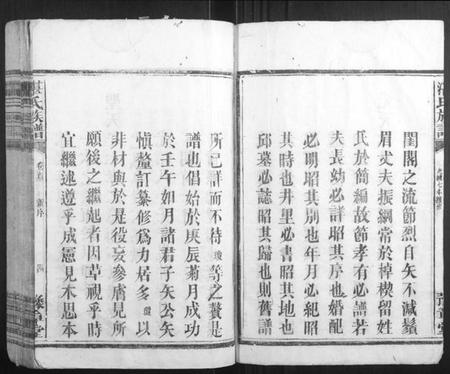 閨閣之流節烈自矢不減鬚
眉丈夫振綱常於綽楔留姓
氏於簡編故節孝有必譜若
夫長幼必詳昭其序也婚配
必明昭其別也年月必紀昭
其時也井里必書昭其地也
邱墓必誌昭其歸也則舊譜
所已詳而不待 等之贅是
譜也倡始於庚辰菊月成功
於壬午如月諸君子矢公矢
慎釐訂纂修爲力居多 以
非材與於是役妄參膚見所
願後之繼起者因革視乎時
宜繼述遵乎成憲見木思本
氏族譜
四